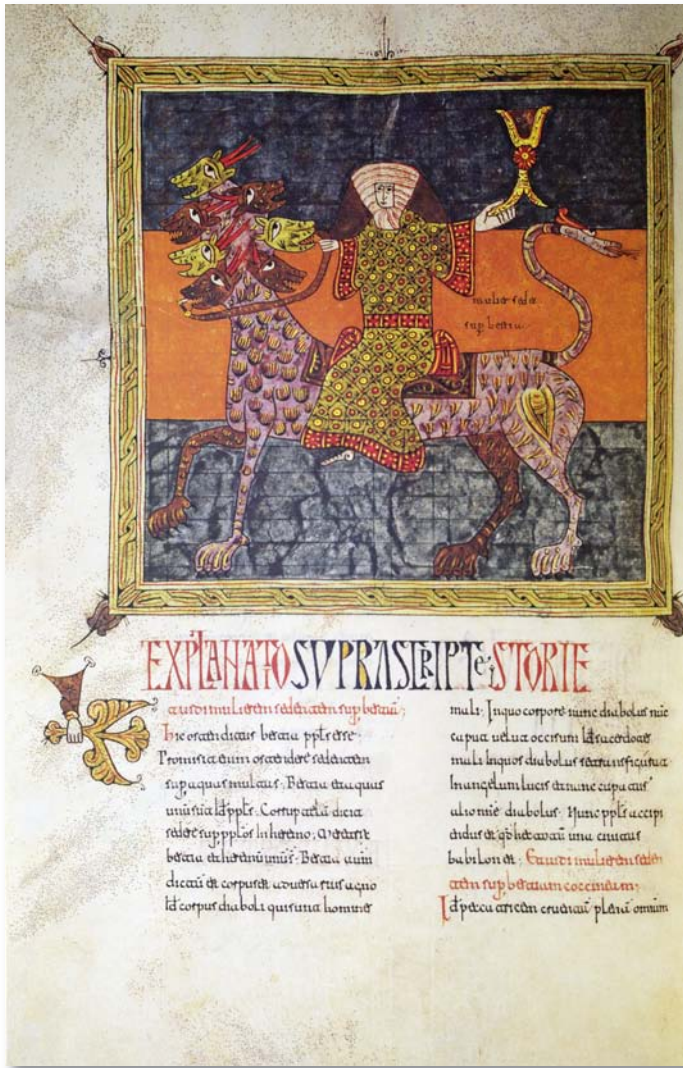 mulier sedet
sup bestia
EXPLANATO SVPRASCRIPTE ISTORIE
Et uidi mulierem sedentem sup bestiã;
Hic ostendit bestia ppls esse·
Promisit enim ostendere sedentem
sup aquas multas· Bestia et aquas
unũ sunt Id ppls· Corruptelã dicit
sedere sup pplos In heremo; Meretrix
bestia et heremũ unũ· Bestia
corpus est aduersarius agno
Id corpus diaboli qui sunt homines
mali· In quo corpore nunc diabolus
caput uelut occisum Id sacerdotes
mali In quos diabolus se transfigurat
In angelum lucis et nunc caput
diabolus· ppls accipi
endus est una ciuitas
babilon est; Et uidi mulierem seden
tem sup bestiam coccineam;
Id peccatricem cruentatã plenã omnium